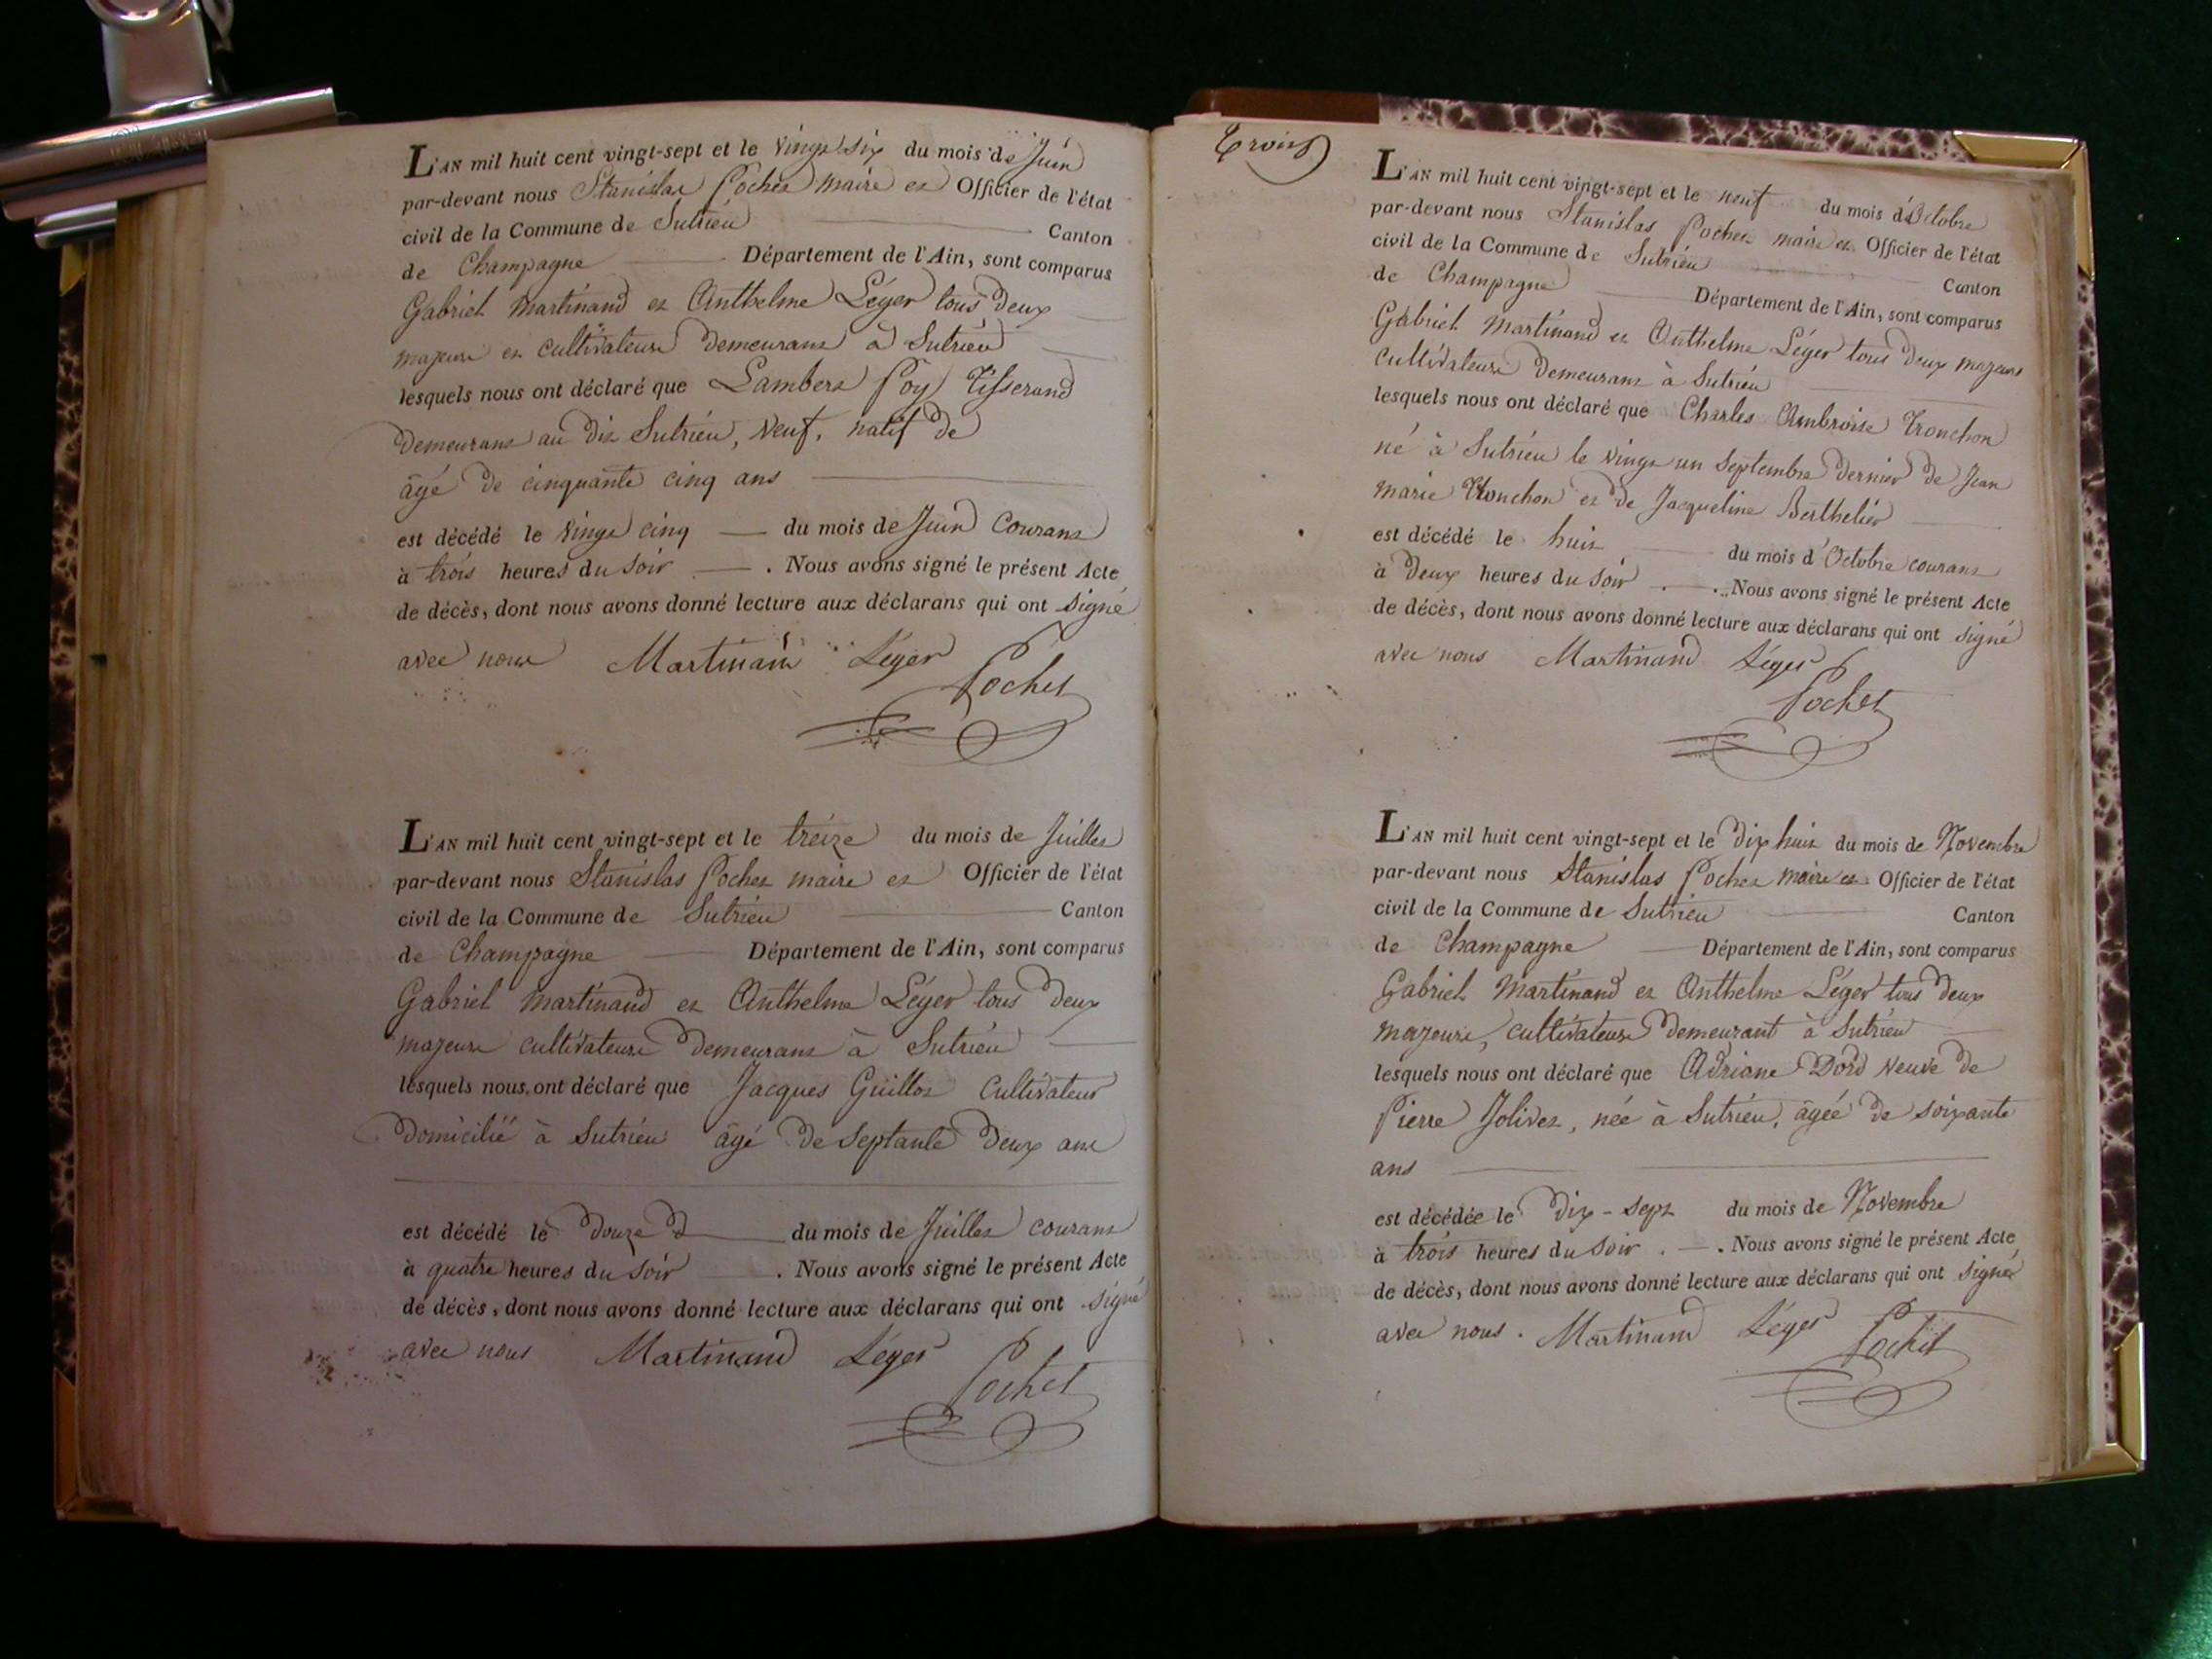 L'AN mil huit cent vingt-sept et le vingt six du mois de Juin
par-devant nous Stanislas Pochet maire et Officier de l'état
civil de la Commune de Sutrieu Canton
de Champagne Département de l'Ain, sont comparus
Gabriel Martinand et Anthelme Léger tous deux
majeurs et cultivateurs demeurant à Sutrieu
lesquels nous ont déclaré que Lambert Foy Tisserand
demeurant au dit Sutrieu, veuf, natif de
âgé de cinquante cinq ans
est décédé le vingt cinq du mois de Juin Courant
à trois heures du soir . Nous avons signé le présent Acte
de décès, dont nous avons donné lecture aux déclarans qui ont signé
avec nous Martinand Léger
Pochet
L'AN mil huit cent vingt-sept et le treize du mois de Juillet
par-devant nous Stanislas Pochet maire et Officier de l'état
civil de la Commune de Sutrieu Canton
de Champagne Département de l'Ain, sont comparus
Gabriel Martinand et Anthelme Léger tous deux
majeurs cultivateurs demeurant à Sutrieu
lesquels nous ont déclaré que Jacques Guillot Cultivateur
domicilié à Sutrieu âgé de septante deux ans
est décédé le douze du mois de Juillet courant
à quatre heures du soir . Nous avons signé le présent Acte
de décès, dont nous avons donné lecture aux déclarans qui ont signé
avec nous Martinand Léger
Pochet
Trois
L'AN mil huit cent vingt-sept et le neuf du mois d'Octobre
par-devant nous Stanislas Pochet maire et Officier de l'état
civil de la Commune de Sutrieu Canton
de Champagne Département de l'Ain, sont comparus
Gabriel Martinand et Anthelme Léger tous deux majeurs
cultivateurs demeurant à Sutrieu
lesquels nous ont déclaré que Charles Ambroise Tronchon
né à Sutrieu le vingt un Septembre dernier de Jean
marie Tronchon et de Jacqueline Berthelier
est décédé le huit du mois d'Octobre courant
à deux heures du soir . Nous avons signé le présent Acte
de décès, dont nous avons donné lecture aux déclarans qui ont signé
avec nous Martinand Léger
Pochet
L'AN mil huit cent vingt-sept et le dix huit du mois de Novembre
par-devant nous Stanislas Pochet maire et Officier de l'état
civil de la Commune de Sutrieu Canton
de Champagne Département de l'Ain, sont comparus
Gabriel Martinand et Anthelme Léger tous deux
majeurs, cultivateurs demeurant à Sutrieu
lesquels nous ont déclaré que Adriane Dord veuve de
Pierre Jolivet, née à Sutrieu, âgée de soixante
ans
est décédée le dix-sept du mois de Novembre
à trois heures du soir . Nous avons signé le présent Acte
de décès, dont nous avons donné lecture aux déclarans qui ont signé
avec nous. Martinand Léger Pochet